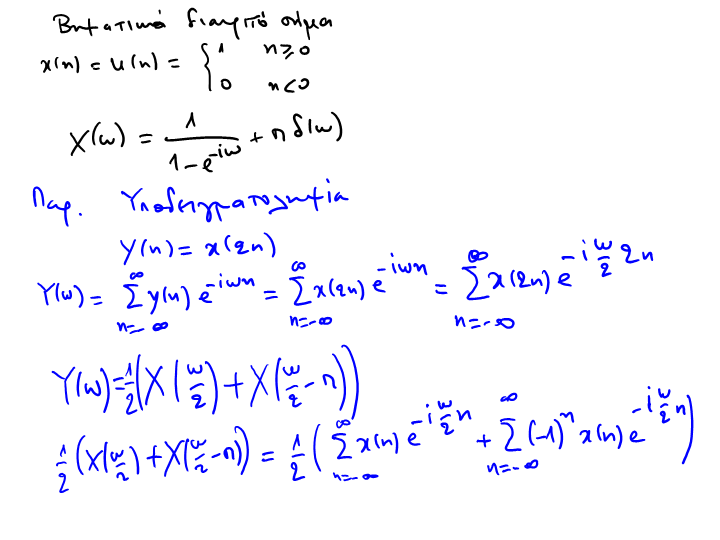 Βηματικό διακριτό σήμα
x(n) = u(n) = { 1 n≥0
0 n<0
X(ω) = 1/(1-e^{-iω}) + π δ(ω)
Παρ. Υποδειγματοληψία
y(n) = x(2n)
Y(ω) = ∑_{n=-∞}^{∞} y(n) e^{-iωn} = ∑_{n=-∞}^{∞} x(2n) e^{-iωn} = ∑_{n=-∞}^{∞} x(2n) e^{-i(ω/2)2n}
Y(ω) = 1/2 (X(ω/2) + X(ω/2 - π))
1/2 (X(ω/2) + X(ω/2 - π)) = 1/2 ( ∑_{n=-∞}^{∞} x(n) e^{-i(ω/2)n} + ∑_{n=-∞}^{∞} (-1)^n x(n) e^{-i(ω/2)n} )